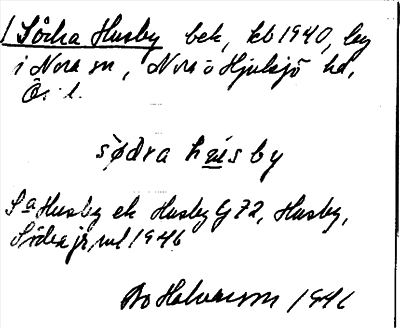 1 Södra Husby bek, kb 1940, by
i Nora sn, Nora o Hjulsjö hd,
Ö. l.
sø̀dra hu̲sby
Sa Husby ek Husby G 72, Husby,
Södra jr, ul 1946
Bo Halvarson 1946